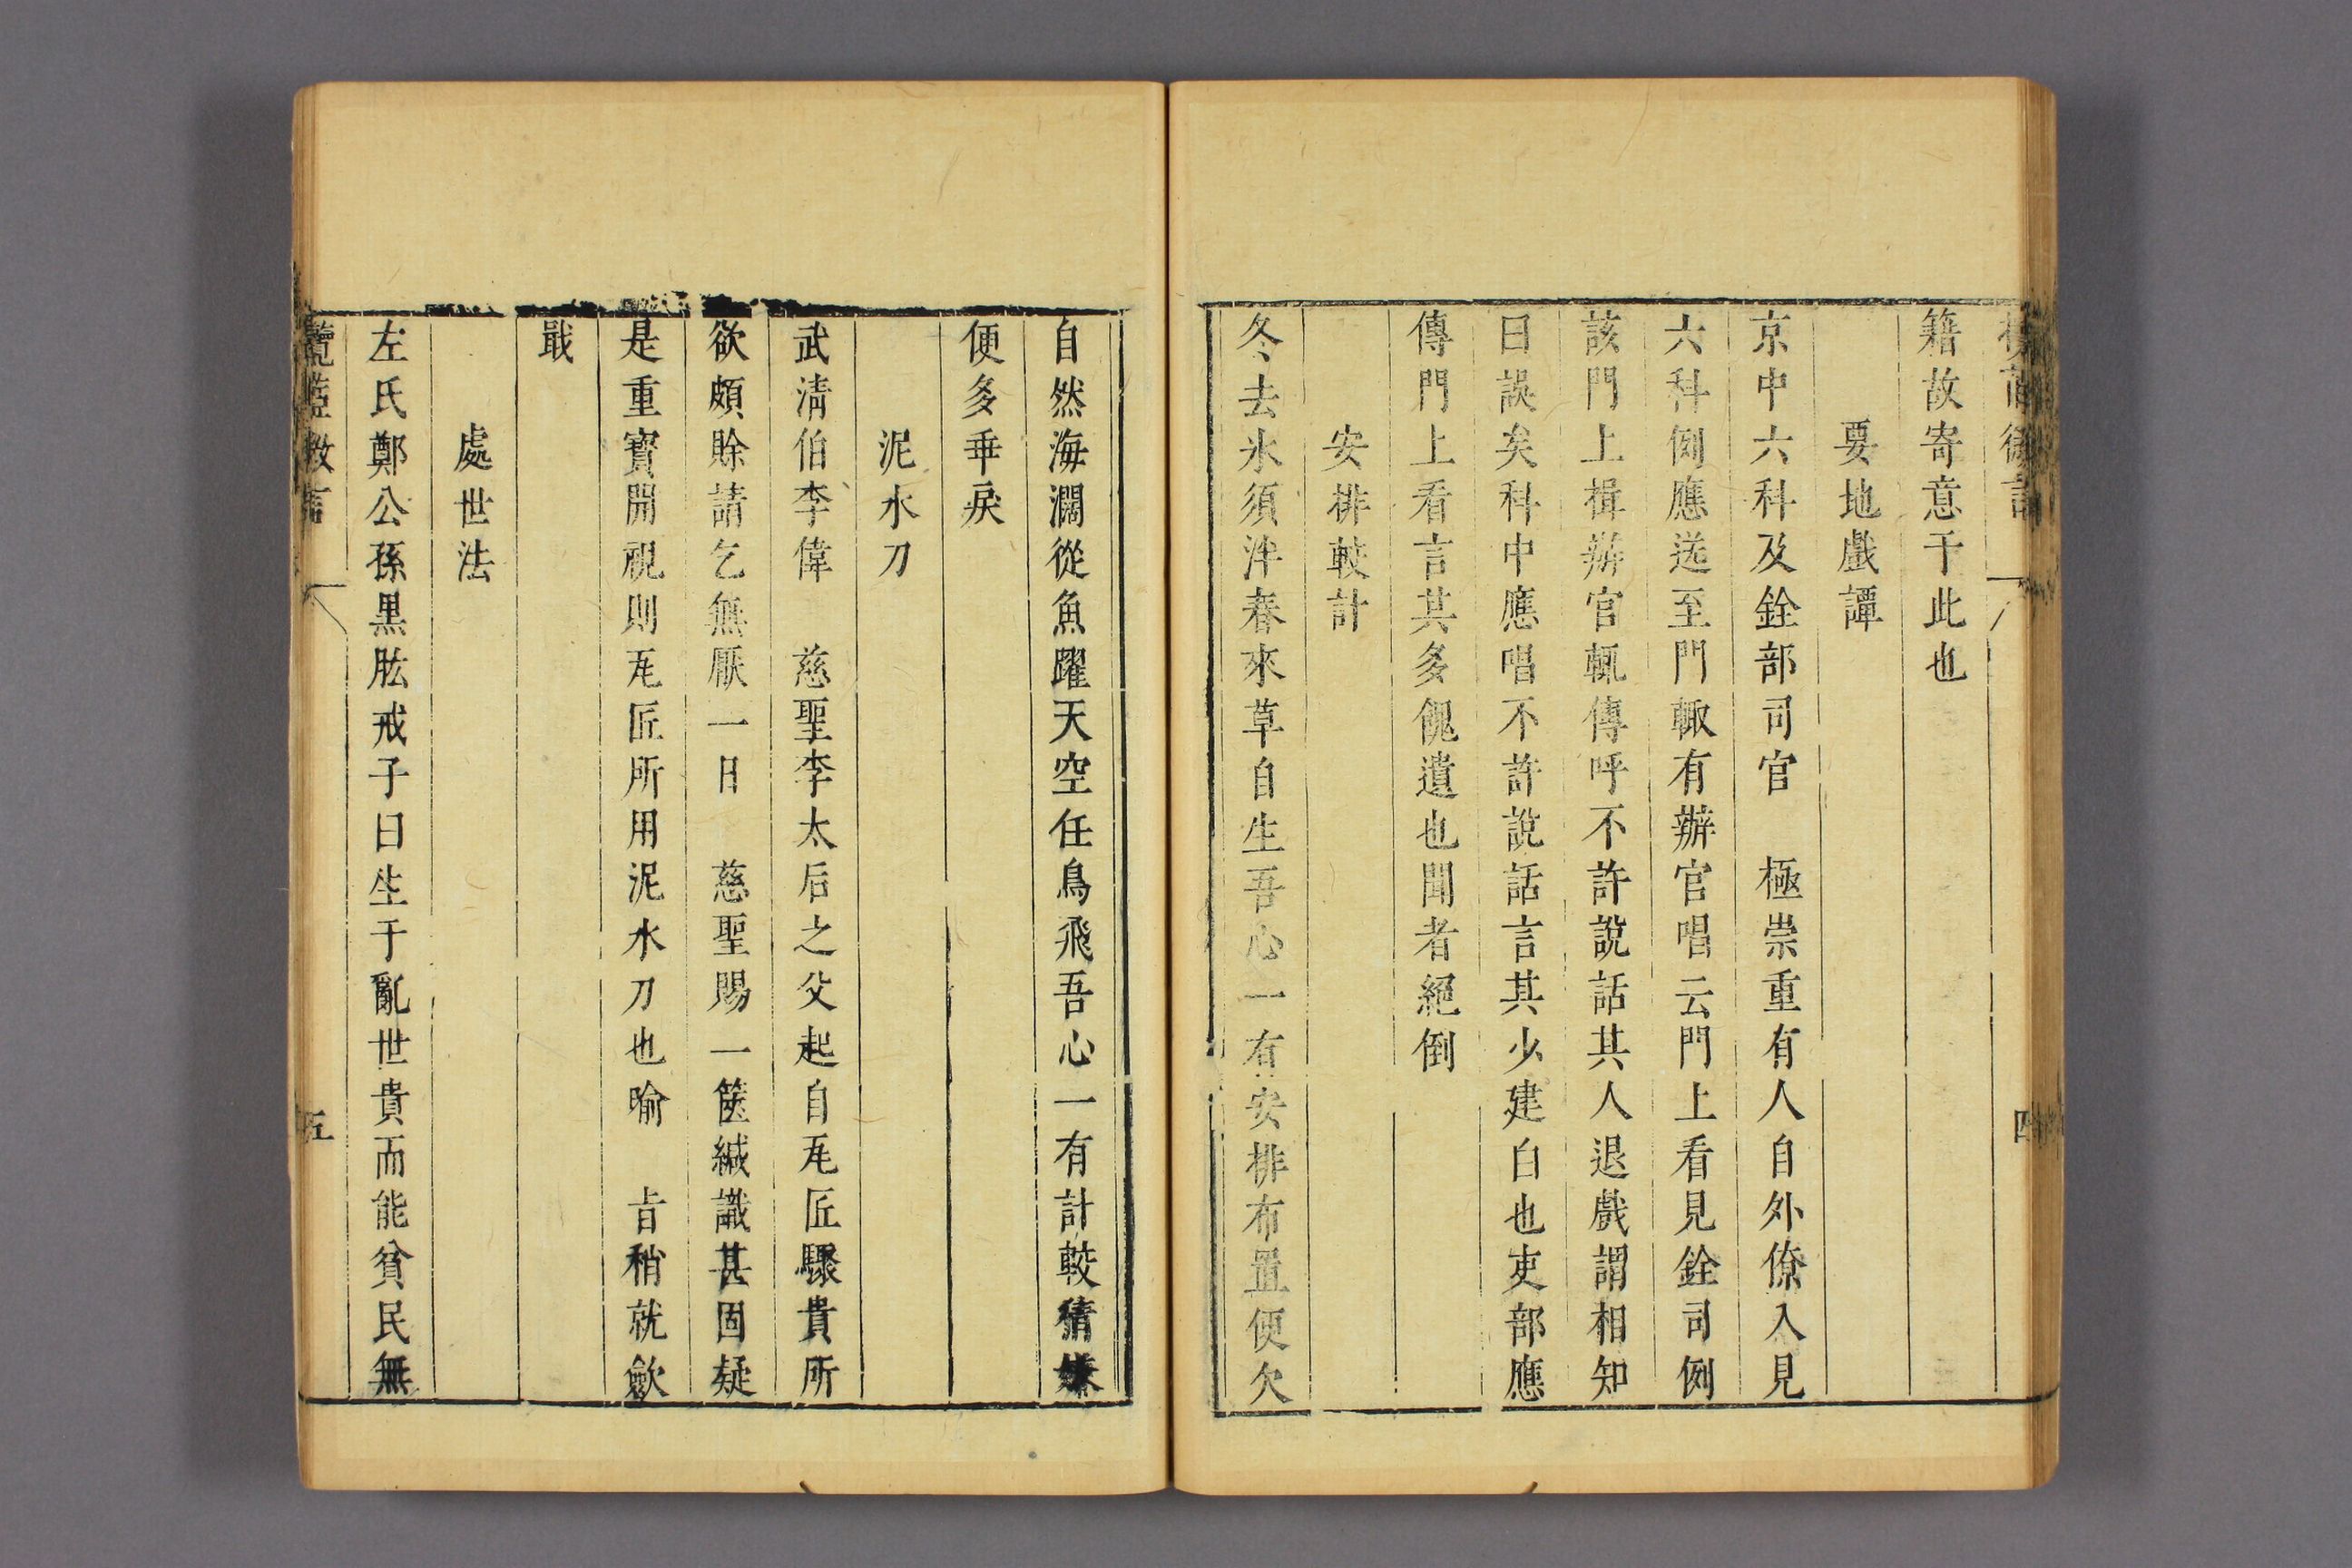 籍故寄意于此也
要地戲譚
京中六科及銓部司官　極崇重有人自外僚入見
六科例應送至門輙有辦官唱云門上看見銓司例
該門上揖辦官輒傳呼不許說話其人退戲謂相知
曰誤矣科中應唱不許說話言其少建白也吏部應
傳門上看言其多餽遺也聞者絕倒
安排較計
冬去氷須泮春來草自生吾心一有安排布置便欠
自然海濶從魚躍天空任鳥飛吾心一有計較猜嫌
便多乖戾
泥水刀
武清伯李偉　慈聖李太后之父起自瓦匠驟貴所
欲頗賒請乞無厭一日　慈聖賜一篋緘識甚固疑
是重寳開視則瓦匠所用泥水刀也喻　㫖稍就歛
戢
處世法
左氏鄭公孫黑肱戒子曰生于亂世貴而能貧民無
五